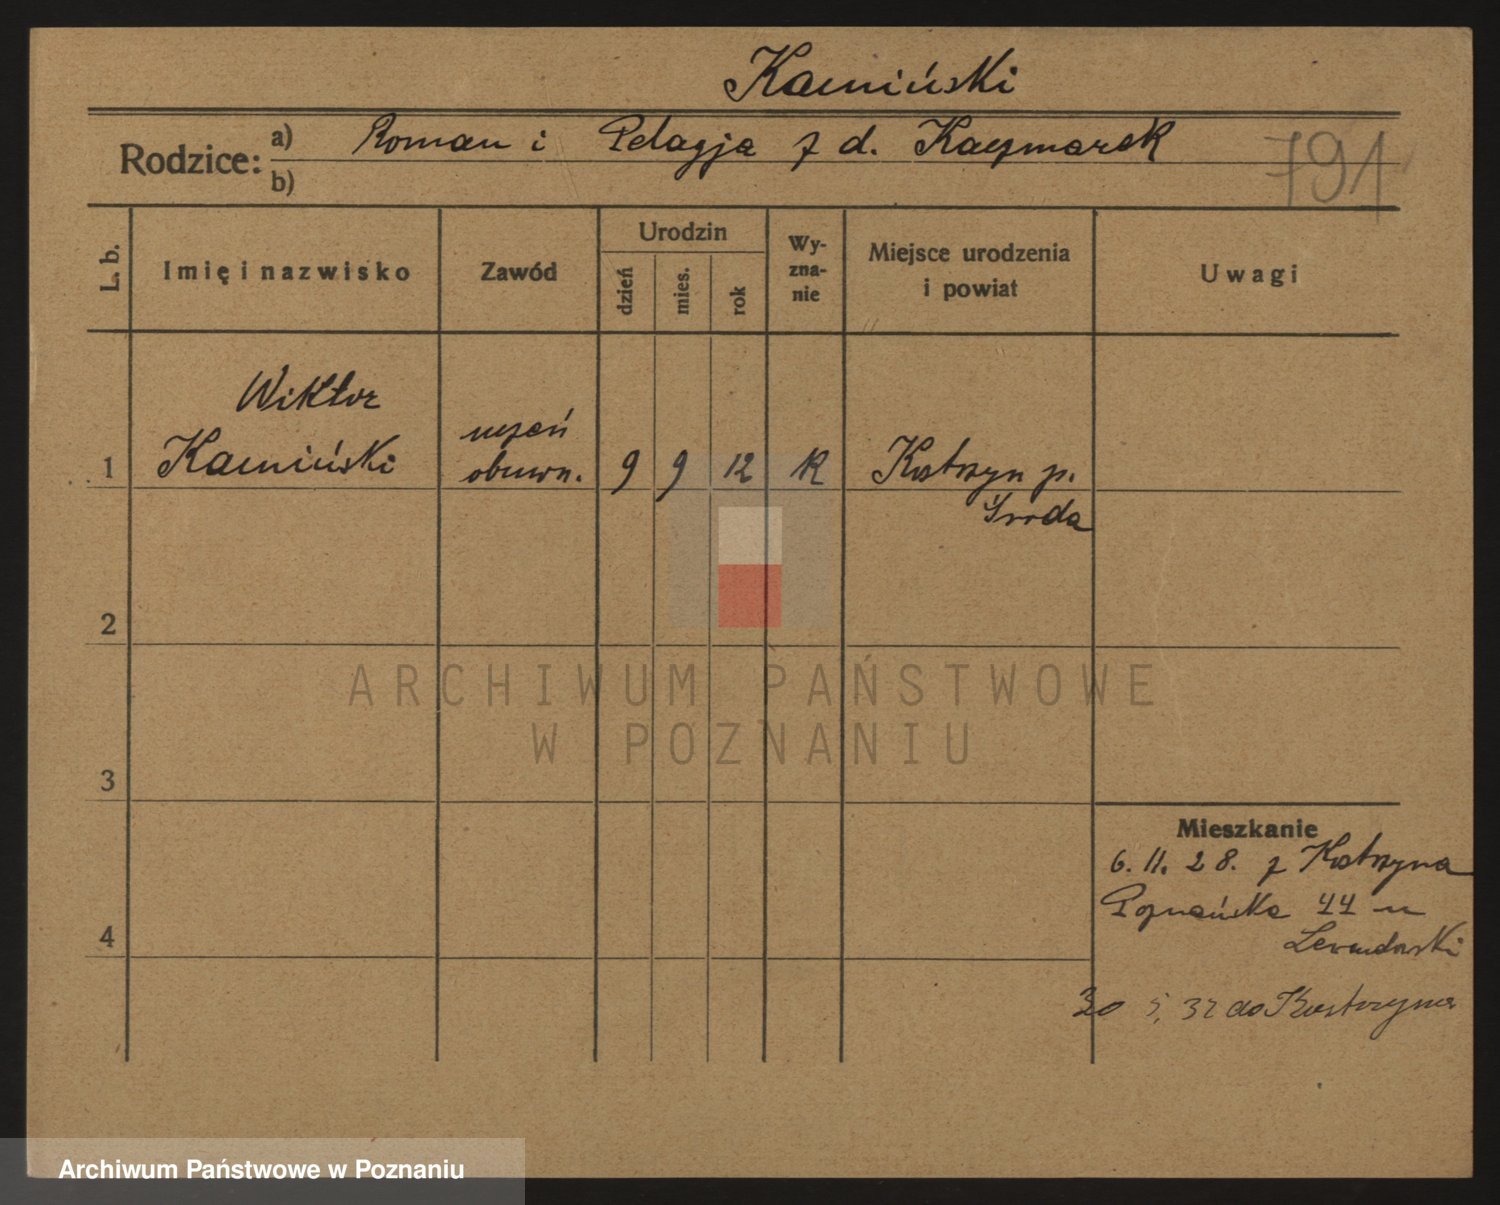 Kamiński
Rodzice:
a) Roman i Pelagja z d. Kaczmarek
b)
791
L. b.
Imię i nazwisko
Zawód
Urodzin
dzień
mies.
rok
Wy-
zna-
nie
Miejsce urodzenia
i powiat
Uwagi
1
Wiktor
Kamiński
uczeń
obuwn.
9
9
12
K
Kostrzyn p.
Środa
2
3
4
Mieszkanie
6. 11. 28. z Kostrzyna
Poznańska 44 u
Lewandowski
30 5. 32 do Kostrzyna
ARCHIWUM PAŃSTWOWE
W POZNANIU
Archiwum Państwowe w Poznaniu